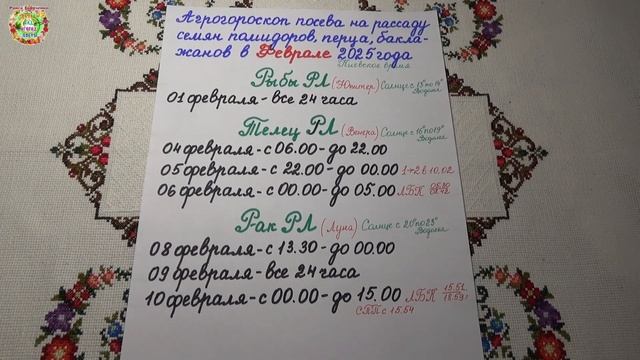 Агрогороскоп посева на рассаду
семян помидоров, перца, бакла-
жанов в Феврале 2025 года
Киевское время
Рыбы РЛ (Юпитер) Солнце с
Водолея
01 февраля - все 24 часа
Телец РЛ (Венера) Солнце с
Водолея
04 февраля - с 06.00 - до 22.00
05 февраля - с 22.00 - до 00.00
06 февраля - с 00.00 - до 05.00 ЛБК
Рак РЛ (Луна) Солнце с
Водолея
08 февраля - с 13.30 - до 00.00
09 февраля - все 24 часа
10 февраля - с 00.00 - до 15.00 ЛБК 15.51
СПП с 15.54